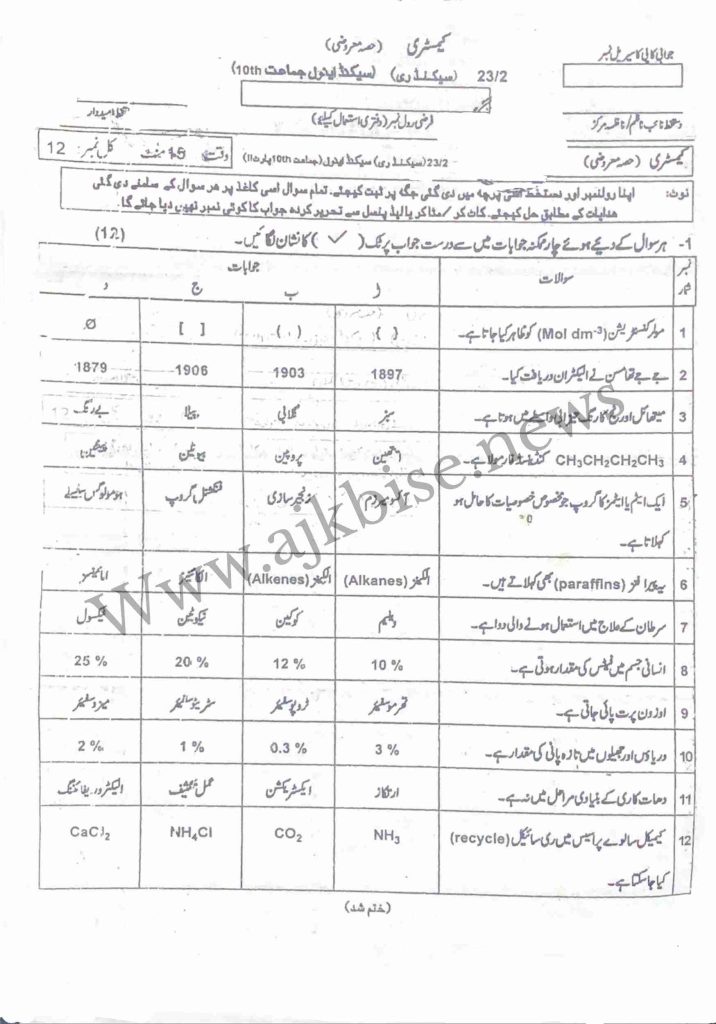 کیمسٹری (حصہ معروضی)
جوابی کاپی کا سیریل نمبر
23/2 (سیکنڈری) (سیکنڈ اینول جماعت 10th)
دستخط نائب ناظم / ناظمہ مرکز
فرضی رول نمبر (دفتری استعمال کیلئے)
دستخط امیدوار
کیمسٹری (حصہ معروضی)
23/2 (سیکنڈری) سیکنڈ اینول (جماعت 10th پارٹ II)
وقت 15 منٹ کل نمبر: 12
نوٹ: اپنا رولنمبر اور دستخط پرچہ میں دی گئی جگہ پر ثبت کیجئے۔ تمام سوال اسی کاغذ پر ہر سوال کے سامنے دی گئی
ہدایات کے مطابق حل کیجئے۔ کاٹ کر / مٹا کر یا لیڈ پنسل سے تحریر کردہ جواب کا کوئی نمبر نہیں دیا جائے گا
1- ہر سوال کے دیئے ہوئے چار ممکنہ جوابات میں سے درست جواب پر ٹک ( ✓ ) کا نشان لگائیں۔ (12)
نمبر شمار سوالات جوابات
ا ب ج د
1 مولر کنسنٹریشن (Mol dm-3) کو ظاہر کیا جاتا ہے۔ { } ( ) [ ] Ø
2 جے جے تھامسن نے الیکٹران دریافت کیا۔ 1897 1903 1906 1879
3 میتھائل اورنج کا رنگ میں ہوتا ہے۔ سبز گلابی پیلا بے رنگ
4 CH3CH2CH2CH3 کنڈنسڈ فارمولا ہے۔ پروپین بیوٹین
5 ایک ایٹم یا ایٹمز کا گروپ جو مخصوص خصوصیات کا حامل ہو زنجیر سازی فنکشنل گروپ ہومولوگس سیریز
کہلاتا ہے۔
6 یہ پیرافنز (paraffins) بھی کہلاتے ہیں۔ الکینز (Alkanes) الکینز (Alkenes) الکائنز
7 سرطان کے علاج میں استعمال ہونے والی دوا ہے۔ کوکین نیکوٹین ٹیکسول
8 انسانی جسم میں کی مقدار ہوتی ہے۔ 10 % 12 % 20 % 25 %
9 اوزون پرت پائی جاتی ہے۔ تھرموسفیئر ٹروپوسفیئر سٹریٹوسفیئر میزوسفیئر
10 دریاؤں اور جھیلوں میں تازہ پانی کی مقدار ہے۔ 3 % 0.3 % 1 % 2 %
11 دھات کاری کے بنیادی مراحل میں نہ ہے۔ ارتکاز ایکسٹریکشن عمل تکثیف الیکٹرو ریفائننگ
12 کیمیکل سالوے پراسیس میں ری سائیکل (recycle) NH3 CO2 NH4Cl CaCl2
کیا جا سکتا ہے۔
(ختم شد)
www.ajkbise.news